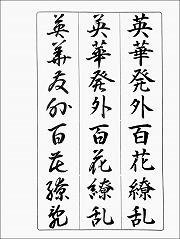 英華発外百花繚乱
英華発外百花繚乱
英華発外百花繚乱